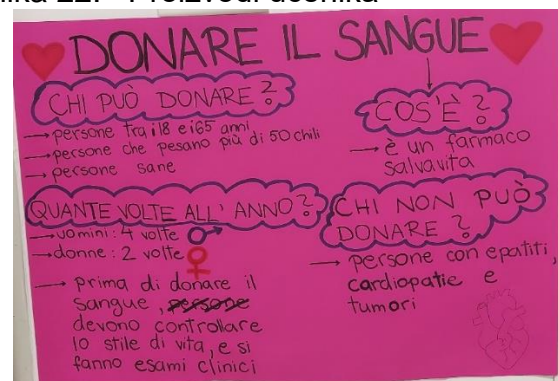 DONARE IL SANGUE
CHI PUÒ DONARE?
→ persone tra i 18 e i 65 anni
→ persone che pesano più di 50 chili
→ persone sane
COS'È?
→ è un farmaco
salvavita
QUANTE VOLTE ALL'ANNO?
→ uomini: 4 volte ♂
→ donne: 2 volte ♀
→ prima di donare il
sangue, persone
devono controllare
lo stile di vita, e si
fanno esami clinici
CHI NON PUÒ
DONARE?
→ persone con epatiti,
cardiopatie e
tumori